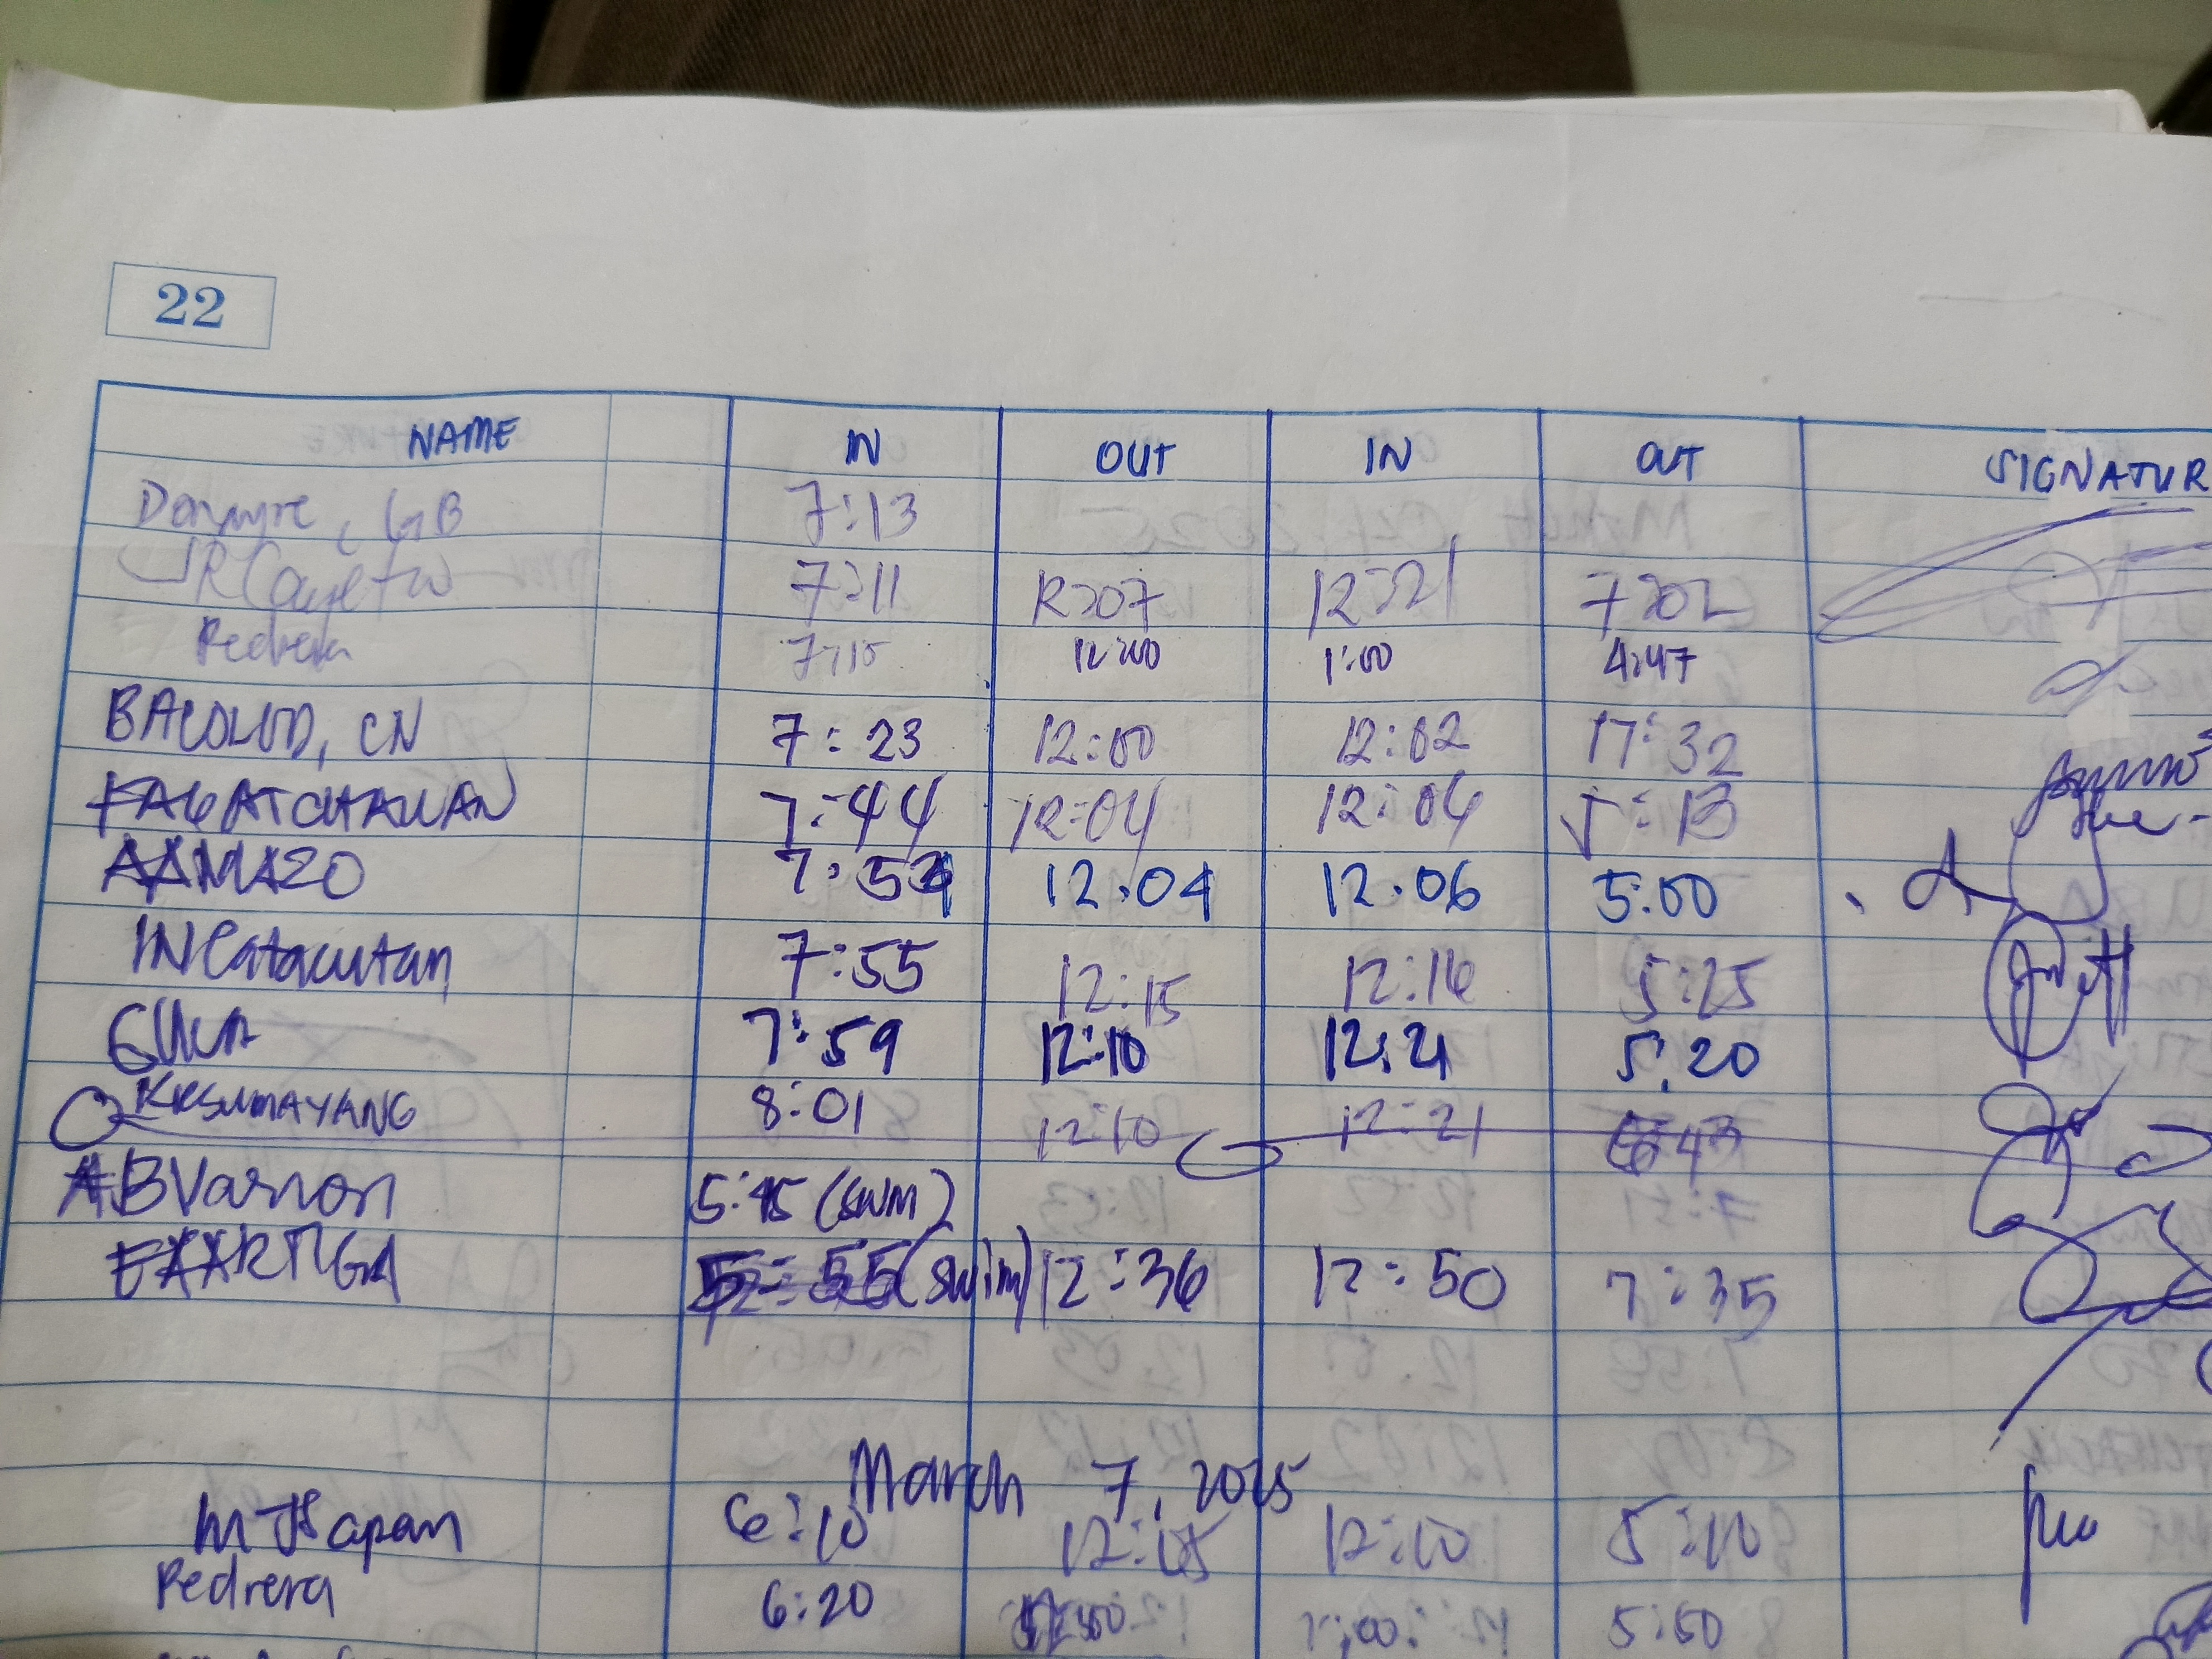 22
NAME IN OUT IN OUT SIGNATUR
GB 7:13
7:11 12:07 12:21 7:02
Pedrera 7:15 12:00 1:00 4:47
BACOLOD, CN 7:23 12:00 12:02 17:32
7:44 12:04 12:06 5:13
AAMAZO 7:54 12.04 12.06 5:00
INCatacutan 7:55 12:15 12:16 5:25
7:59 12:10 12:21 5:20
KRSUMAYANG 8:01 12:10 12:21 6:43
ABVarron 5:45 (swm)
EAARTIGA 5:55 (swim) 12:36 12:50 7:35
March 7, 2025
6:10 12:05 12:10 5:10
Pedrera 6:20 12:00 1:00 5:50